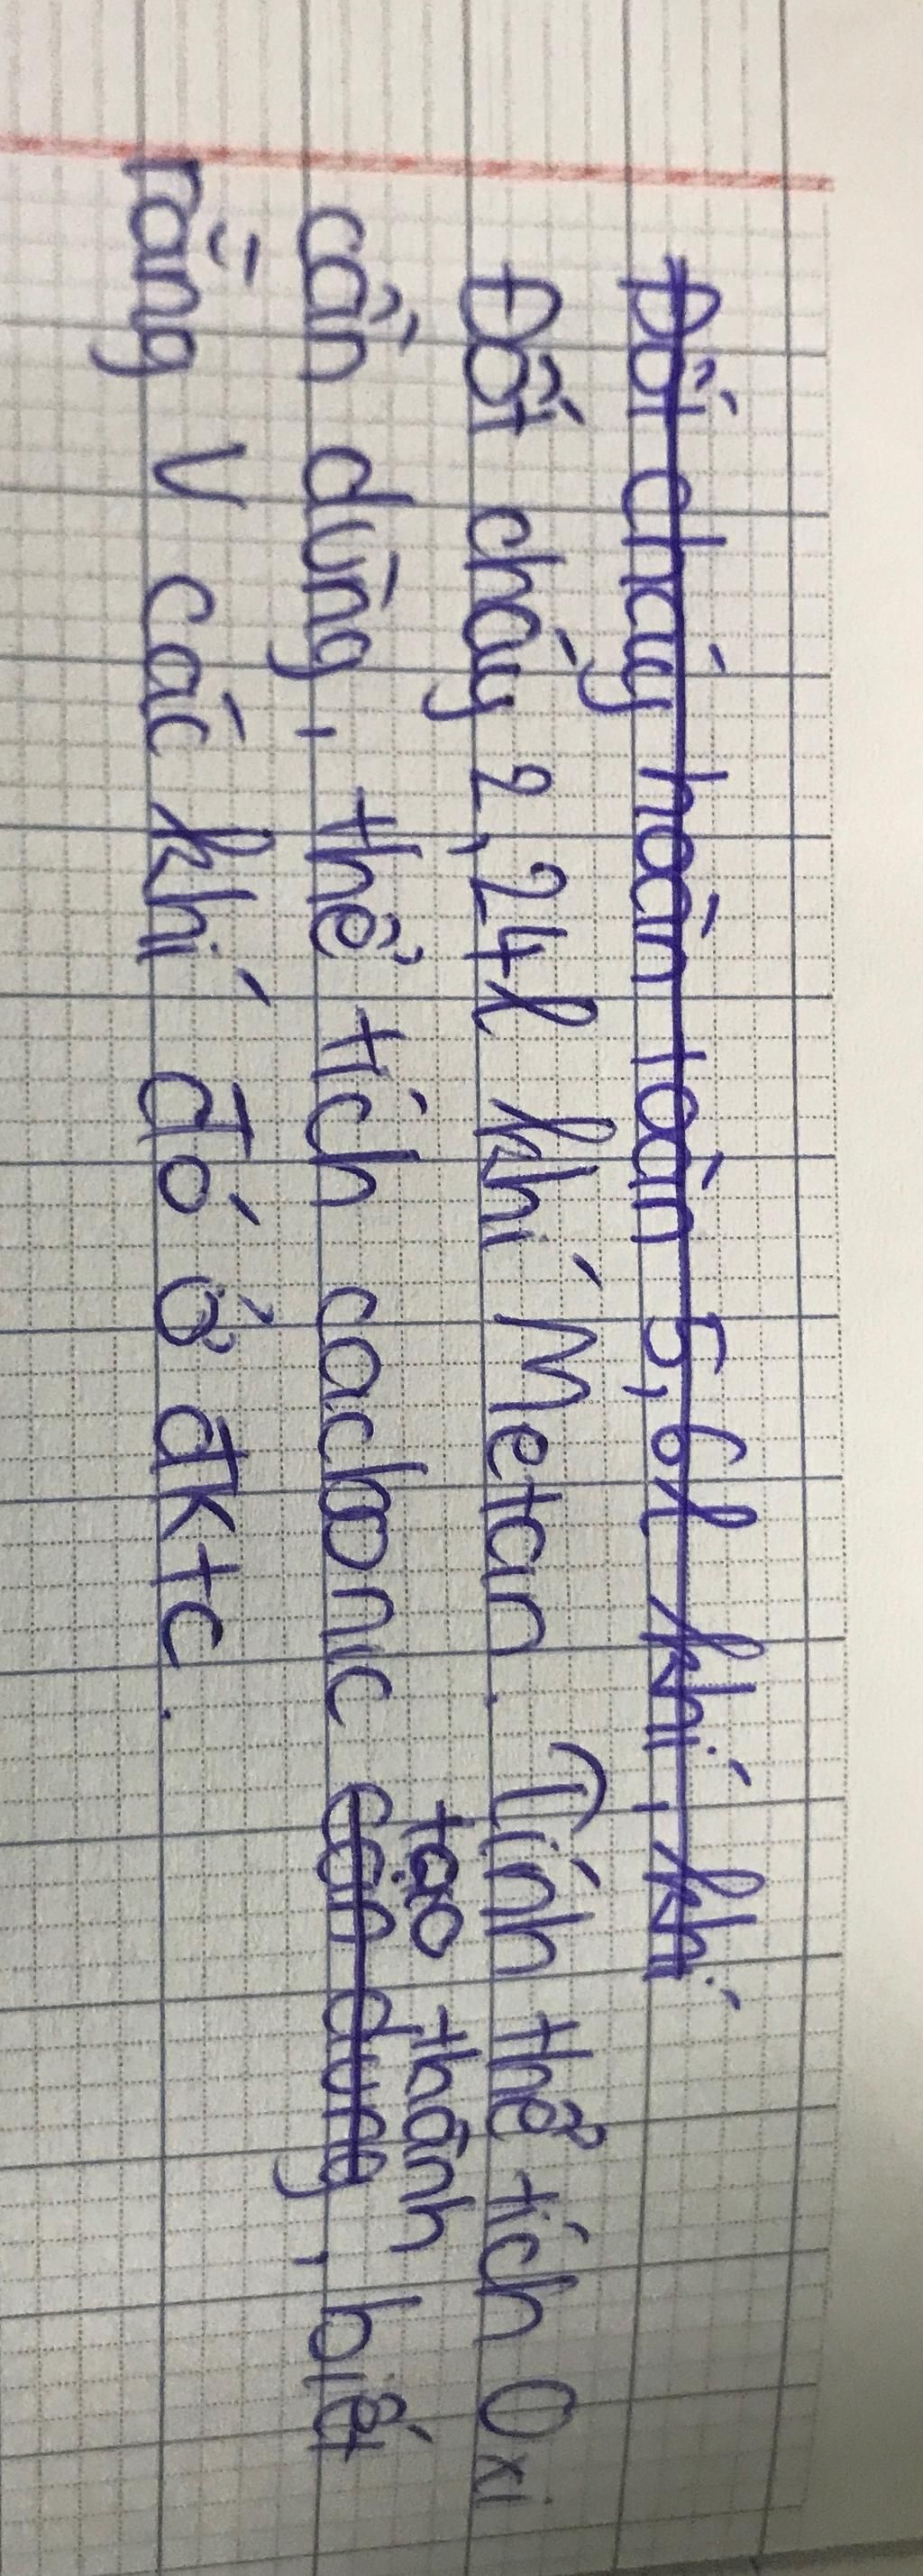 Đốt cháy hoàn toàn 5,6l khí, khí
Đốt cháy 2,24l khí Metan. Tính thể tích Oxi
cần dùng, thể tích cacbonic cần dùng tạo thành, biết
rằng V các khí đó ở đktc.